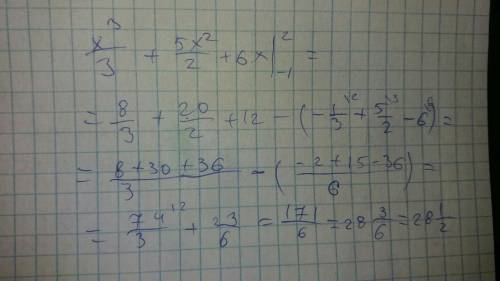 x³/3 + 5x²/2 + 6x |²₋₁ =
= 8/3 + 20/2 + 12 - (-1/3\² + 5/2\³ - 6\⁶) =
= (8+30+36)/3 - ((-2+15-36)/6) =
= 74/3\² + 23/6 = 171/6 = 28 3/6 = 28 1/2